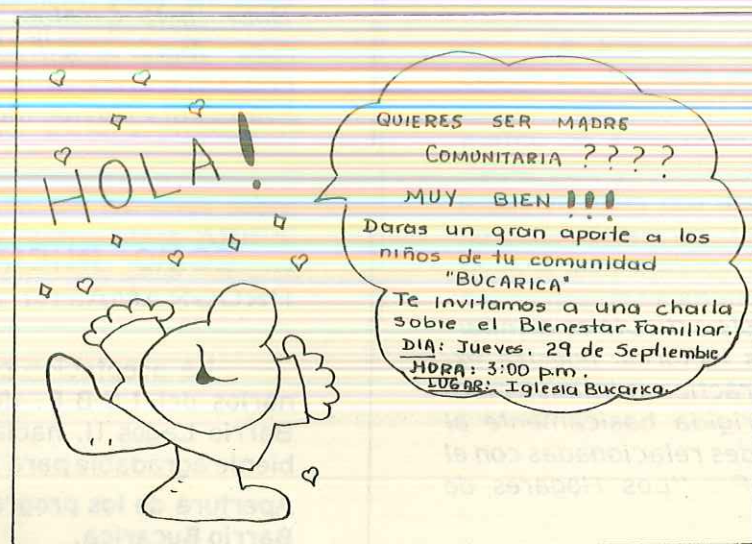 HOLA!
QUIERES SER MADRE
COMUNITARIA ????
MUY BIEN !!!
Daras un gran aporte a los
niños de tu comunidad
"BUCARICA"
Te invitamos a una charla
sobre el Bienestar Familiar.
DIA: Jueves, 29 de Septiembre
HORA: 3:00 p.m.
LUGAR: Iglesia Bucarica.